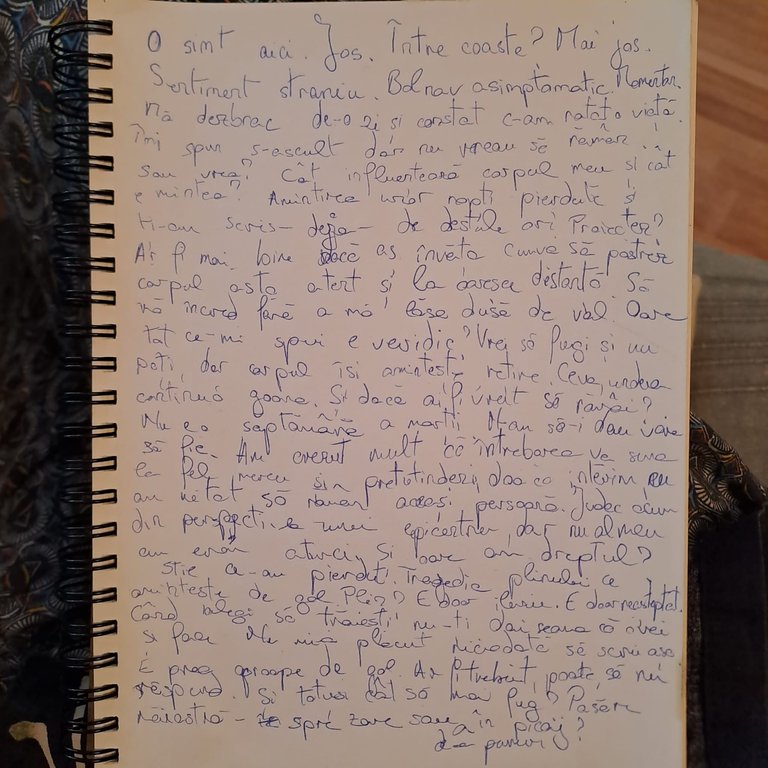 O simt aici. Jos. Între coaste? Mai jos.
Sentiment straniu. Bolnav asimptomatic. Momentan.
Mă dezbrac de-o zi și constat c-am ratat o viață.
Îmi spun s-ascult dar nu vreau să rămân
sau vrea? Cât influențează corpul meu și cât
e mintea? Amintirea unor nopți pierdute și
ti-am scris - deja - de destule ori Proiectez?
Ar fi mai bine dacă aș învăța cumva să păstrez
corpul asta atent și la aceeași distanță Să
mă încred fără a mă lăsa dusă de val. Oare
tot ce-mi spui e veridic? Vrei să fugi și nu
poți, dar corpul își amintește, reține. Ceva, undeva
continuă goana. Și dacă ai fi vrut să rămâi?
Nu e o săptămână a morții N-am să-i dau voie
să fie. Am crezut mult că întrebarea va suna
la fel mereu și-n pretutindeni, doar că interim eu
am uitat să rămân aceeași persoană. Judec acum
din perspectiva unei epicentru, dar nu al meu
cum eram atunci, Și oare am dreptul?
știe ce-am pierdut. Tragedia plinului ce
amintește de gol. Plin? E doar E doar neașteptat.
Când alegi să trăiești nu-ți dai seama că
și faci Nu mi-a plăcut niciodată să scriu așa
E prea aproape de gol. Ar fi trebuit, poate să nu
răspund. Și totuși cât să mai fug? Pasăre
măiastră - spre zare sau în picaj?
de